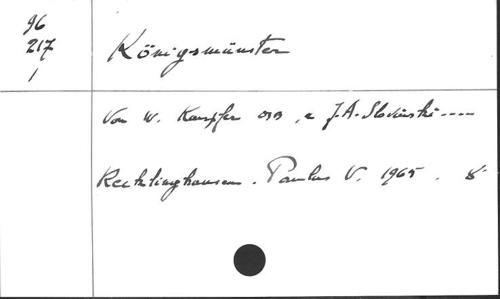 96
217
1
Königsmünster
Von W. Kampfer OSB, e J.A. Slominski ----
Recklinghausen. Paulus V. 1965. 8°